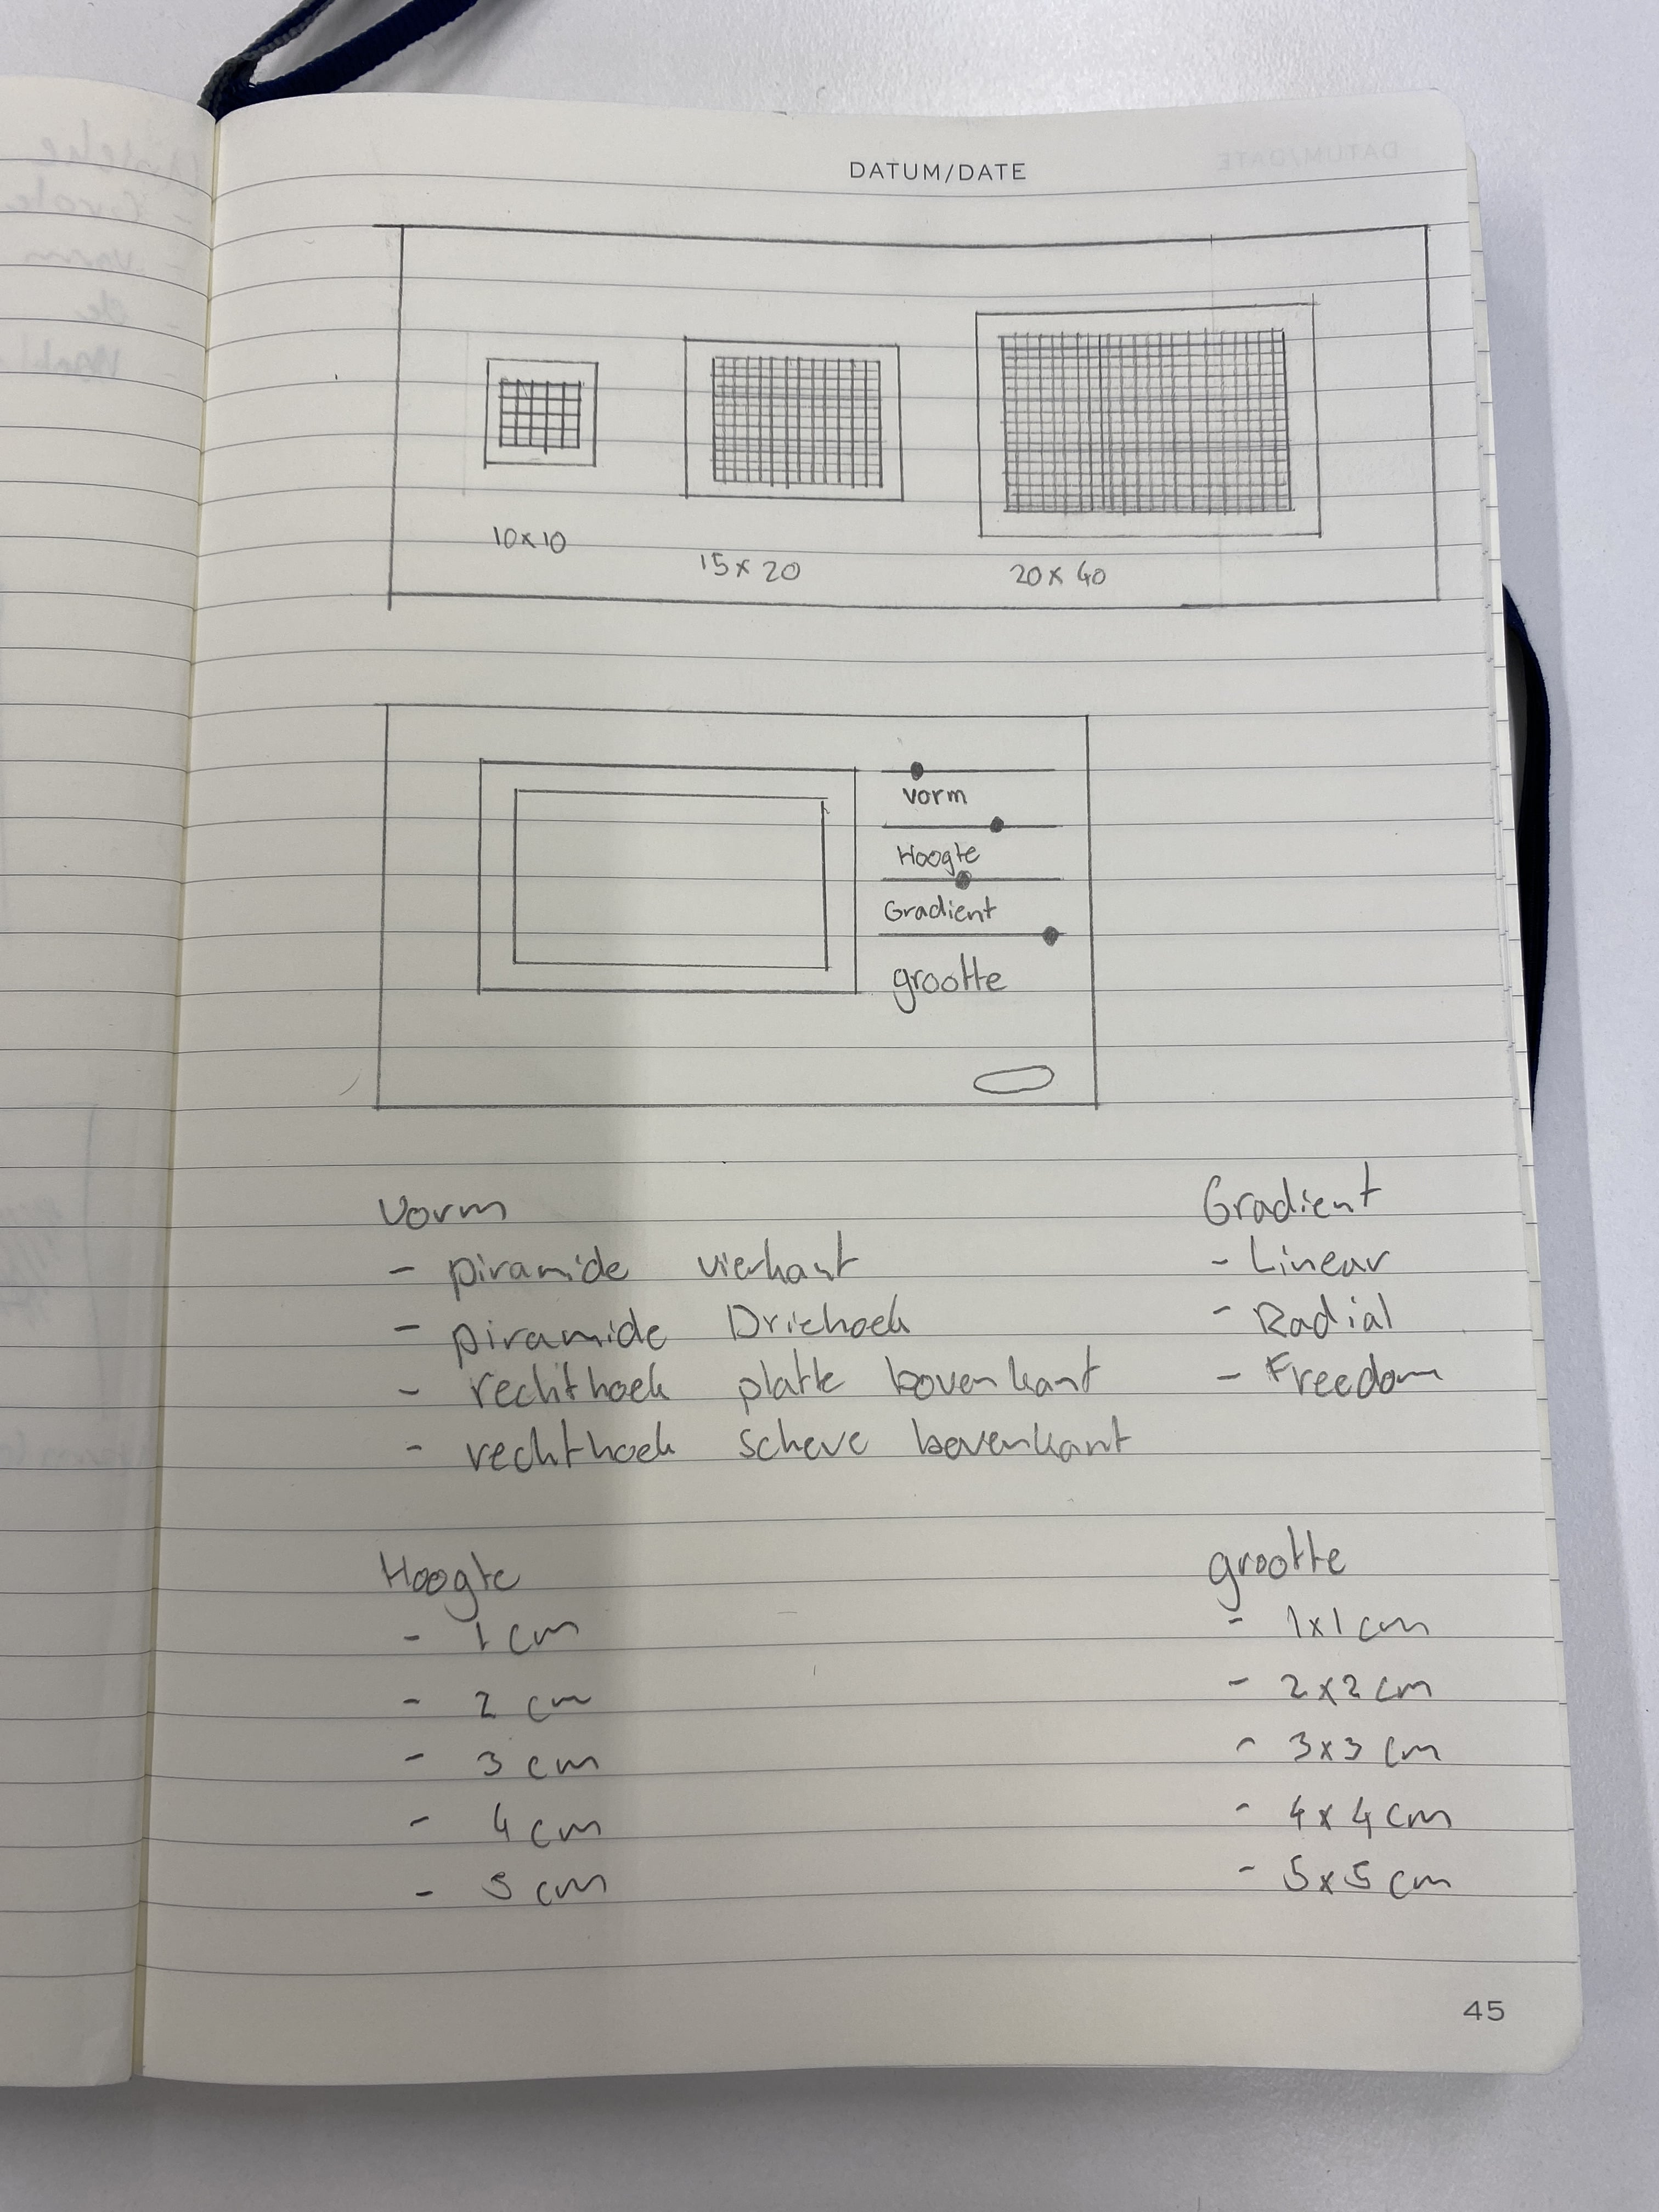 DATUM/DATE
10x10
15x20
20x40
vorm
Hoogte
Gradient
grootte
Vorm
- piramide vierkant
- piramide Driehoek
- rechthoek platte bovenkant
- rechthoek scheve bovenkant
Gradient
- Linear
- Radial
- Freedom
Hoogte
- 1 cm
- 2 cm
- 3 cm
- 4 cm
- 5 cm
grootte
- 1x1 cm
- 2x2 cm
- 3x3 cm
- 4x4 cm
- 5x5 cm
45